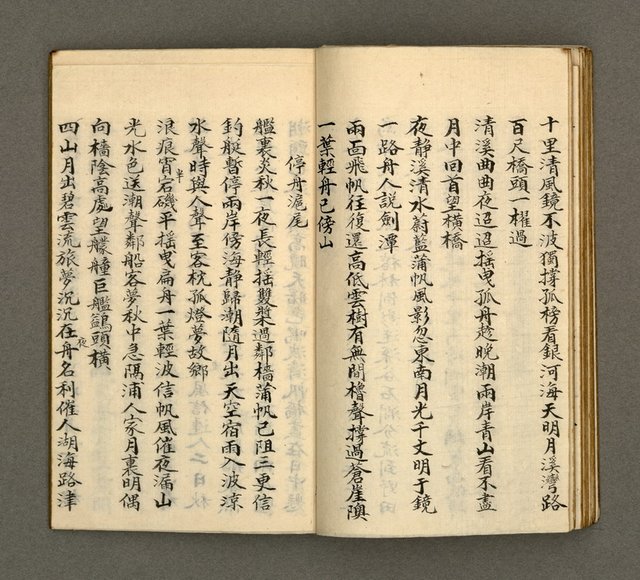 十里清風鏡不波獨撐孤榜看銀河海天明月溪灣路
百尺橋頭一櫂過
清溪曲曲夜迢迢搖曳孤舟趁晚潮兩岸青山看不盡
月中回首望橫橋
夜靜溪清水蔚藍蒲帆風影忽東南月光千丈明于鏡
一路舟人說劍潭
兩面飛帆往復還高低雲樹有無間櫓聲撐過蒼崖隩
一葉輕舟已傍山
停舟滬尾
艦裏炎秋一夜長輕搖雙槳過鄰檣蒲帆已阻三更信
釣艇暫停兩岸傍海靜歸潮隨月出天空宿雨入波涼
水聲時與人聲至客枕孤燈夢故鄉
浪痕宵半宕磯平搖曳扁舟一葉輕波信帆風催夜漏山
光水色送潮聲鄰船客夢秋中急隅浦人家月裏明偶
向檣陰高處望艨艟巨艦鷁頭橫
四山月出碧雲流旅夢沉沉在夜舟名利催人湖海路津